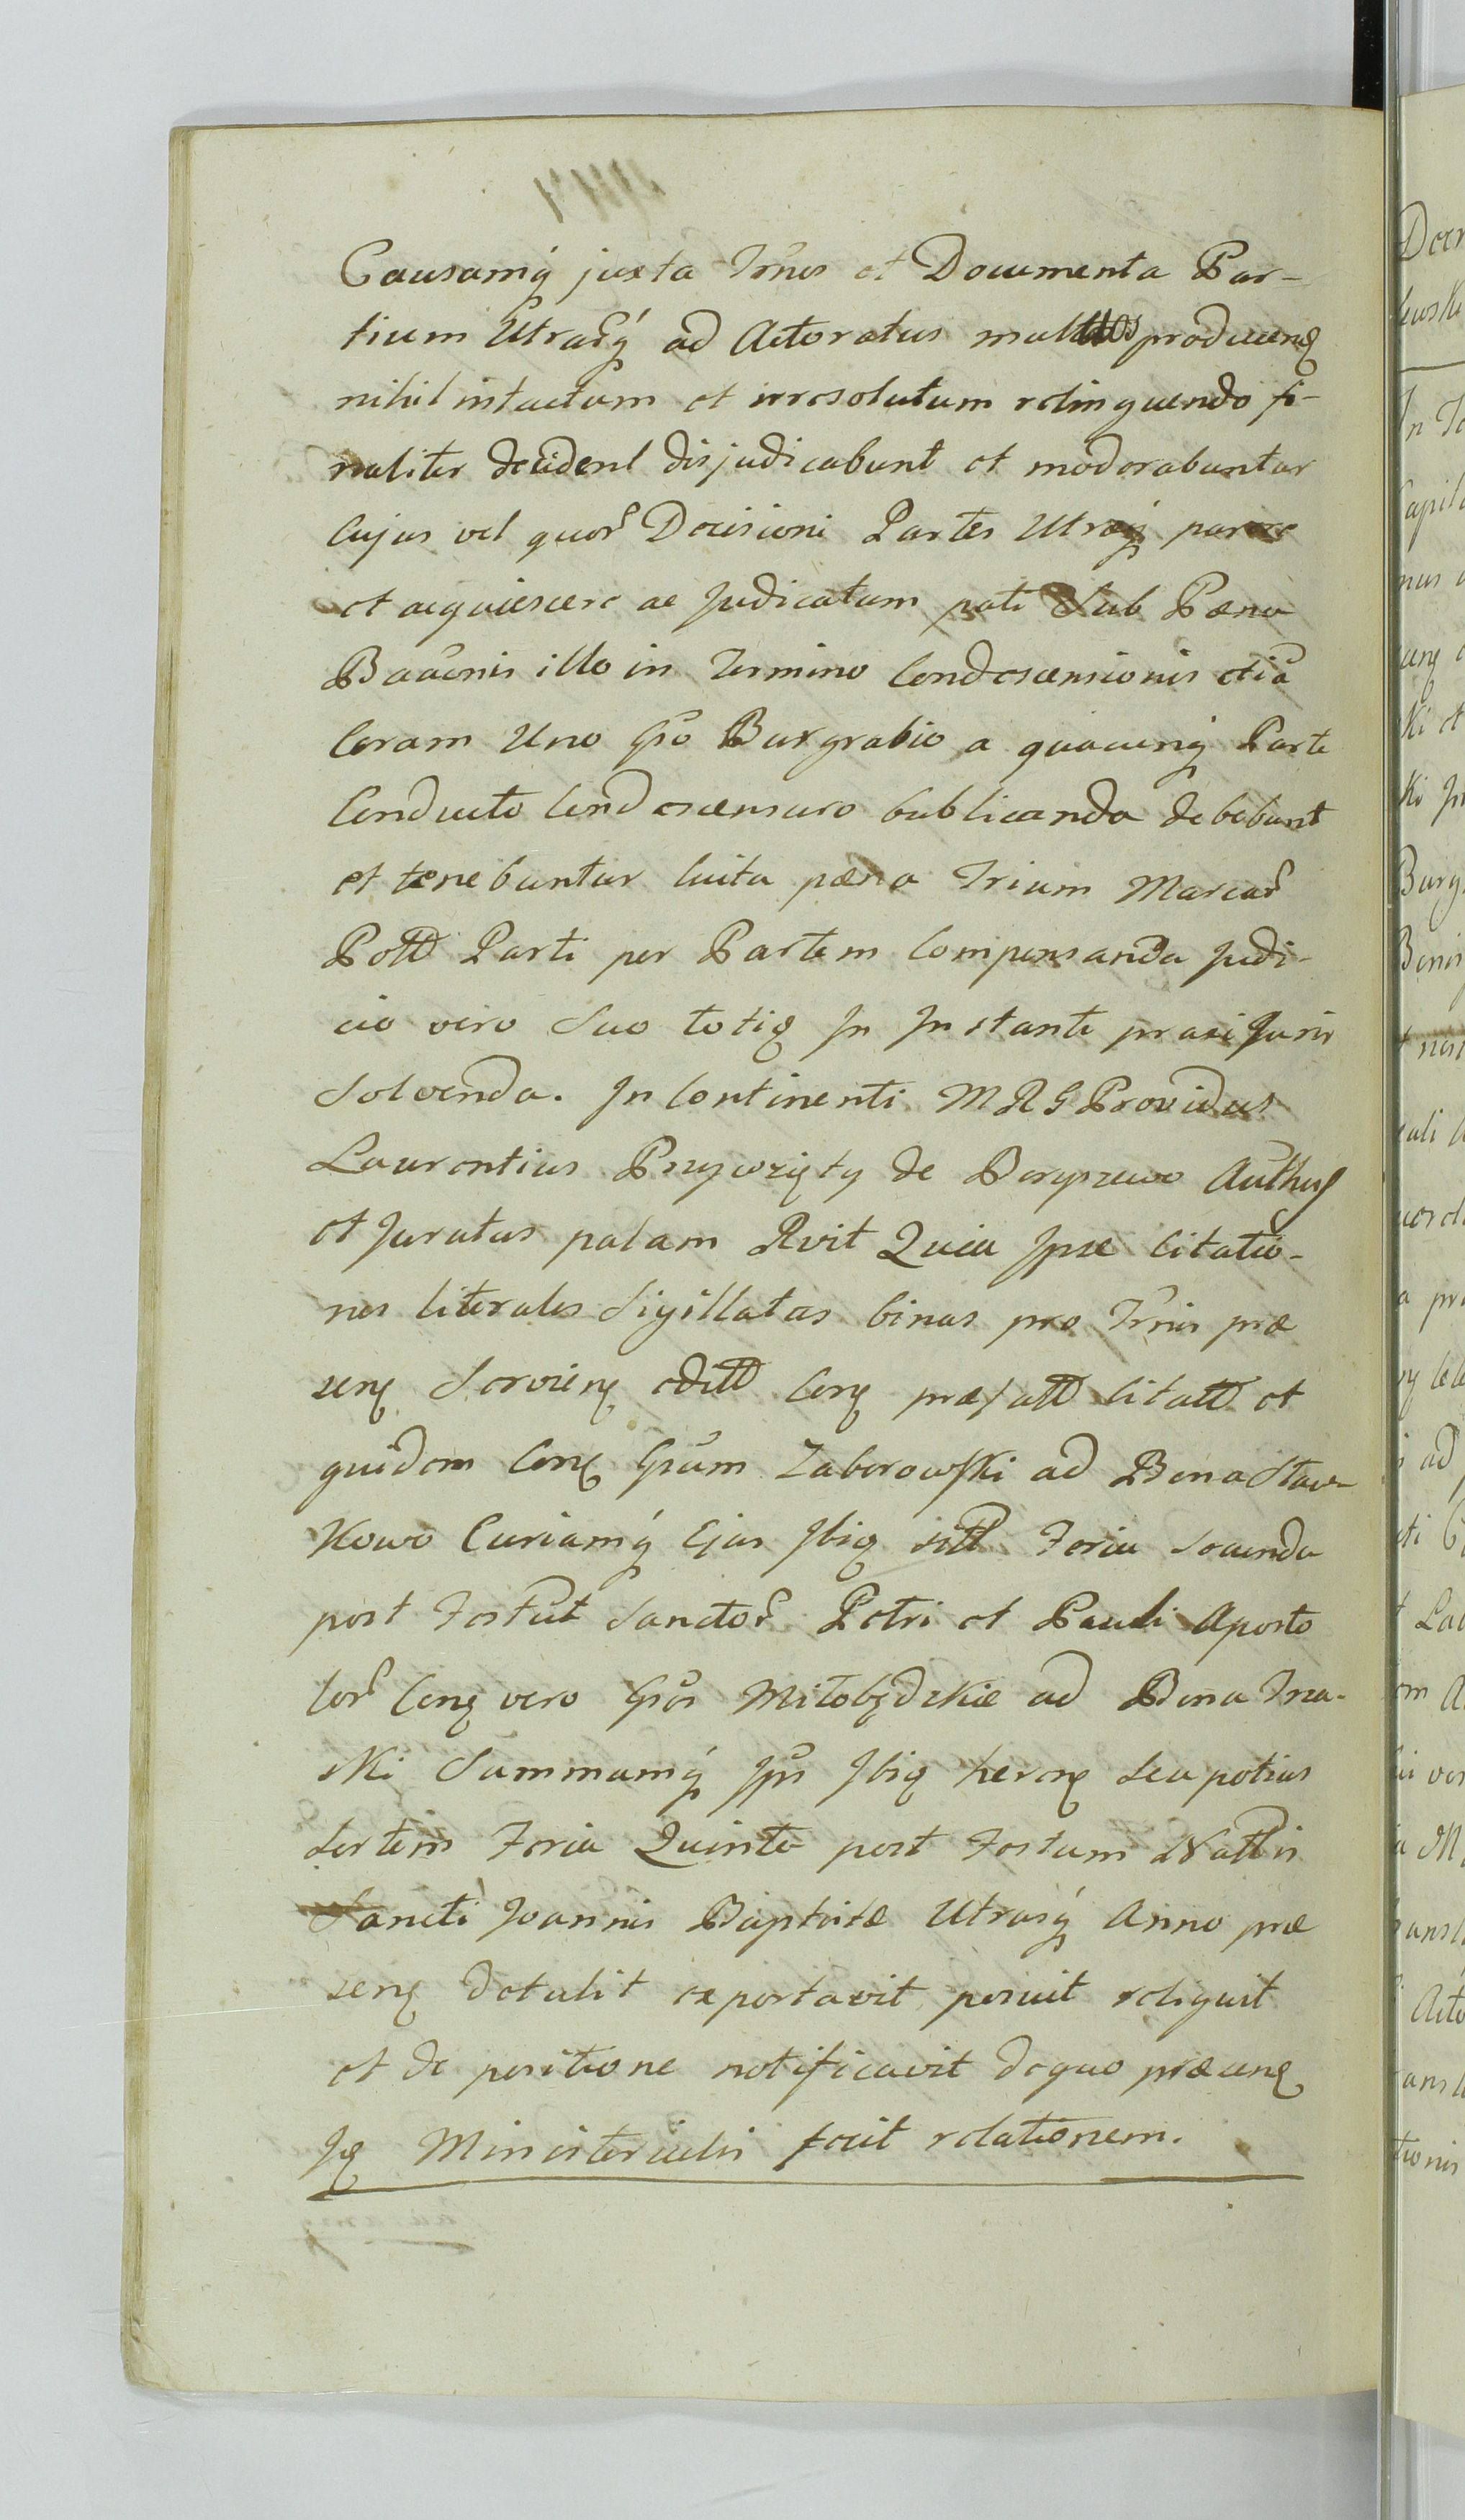 Causamq́ juxta Trn̄os et Documenta Par-
tium Utrar̃q́ ad Actoratus multos producenꝗ
nihil intactum et irresolutum relinquendo fi-
naliter decident disjudicabunt et moderabuntur
Cujus vel quor̃ Decisioni Partes Utræq́ parere
et acquiescere ac Judicatum pati Sub Pæna
Baãonis illo in Termino Condescensionis etiã
Coram Uno Gn̄o Burgrabio a quacunq́ Parte
Conducto Condescensuro bublicanda debebunt
et tenebuntur luita pæna Trium Marcar̃
Pott Parti per Partem Compensanda Judi-
cio vero Suo totiꝗ In Instanti praxi Juris
Solvenda. In Continenti MRG Providus
Laurentius Przywzięty de Boryszewo Auth̃us
et Juratus palam Rvit Quia Ipse Citatio-
nes literales Sigillatas binas pro Trn̄is præ
senꝗ Servienꝗ editt Conꝗ præfatt Citatt et
quidem Conꝗ Gn̄um Zaborowski ad Bona Staw-
kowo Curiamq́ Ejus Ibiꝗ sitt Feria Secunda
post Festum Sanctor̃ Petri et Pauli Aposto
lor̃ Conꝗ vero Gn̄os Miłobędzkie ad Bona Trza-
ski Summamq́ Ips̃ Ibiꝗ herenꝗ Seu potius
Sortem Feria Quinta post Festum Nattis
Sancti Joannis Baptistæ Utrasq́ Anno præ
senꝗ detulit exportavit posuit reliquit
et de positione notificavit dequo præmq́
Iꝗ Ministerialis fecit relationem.